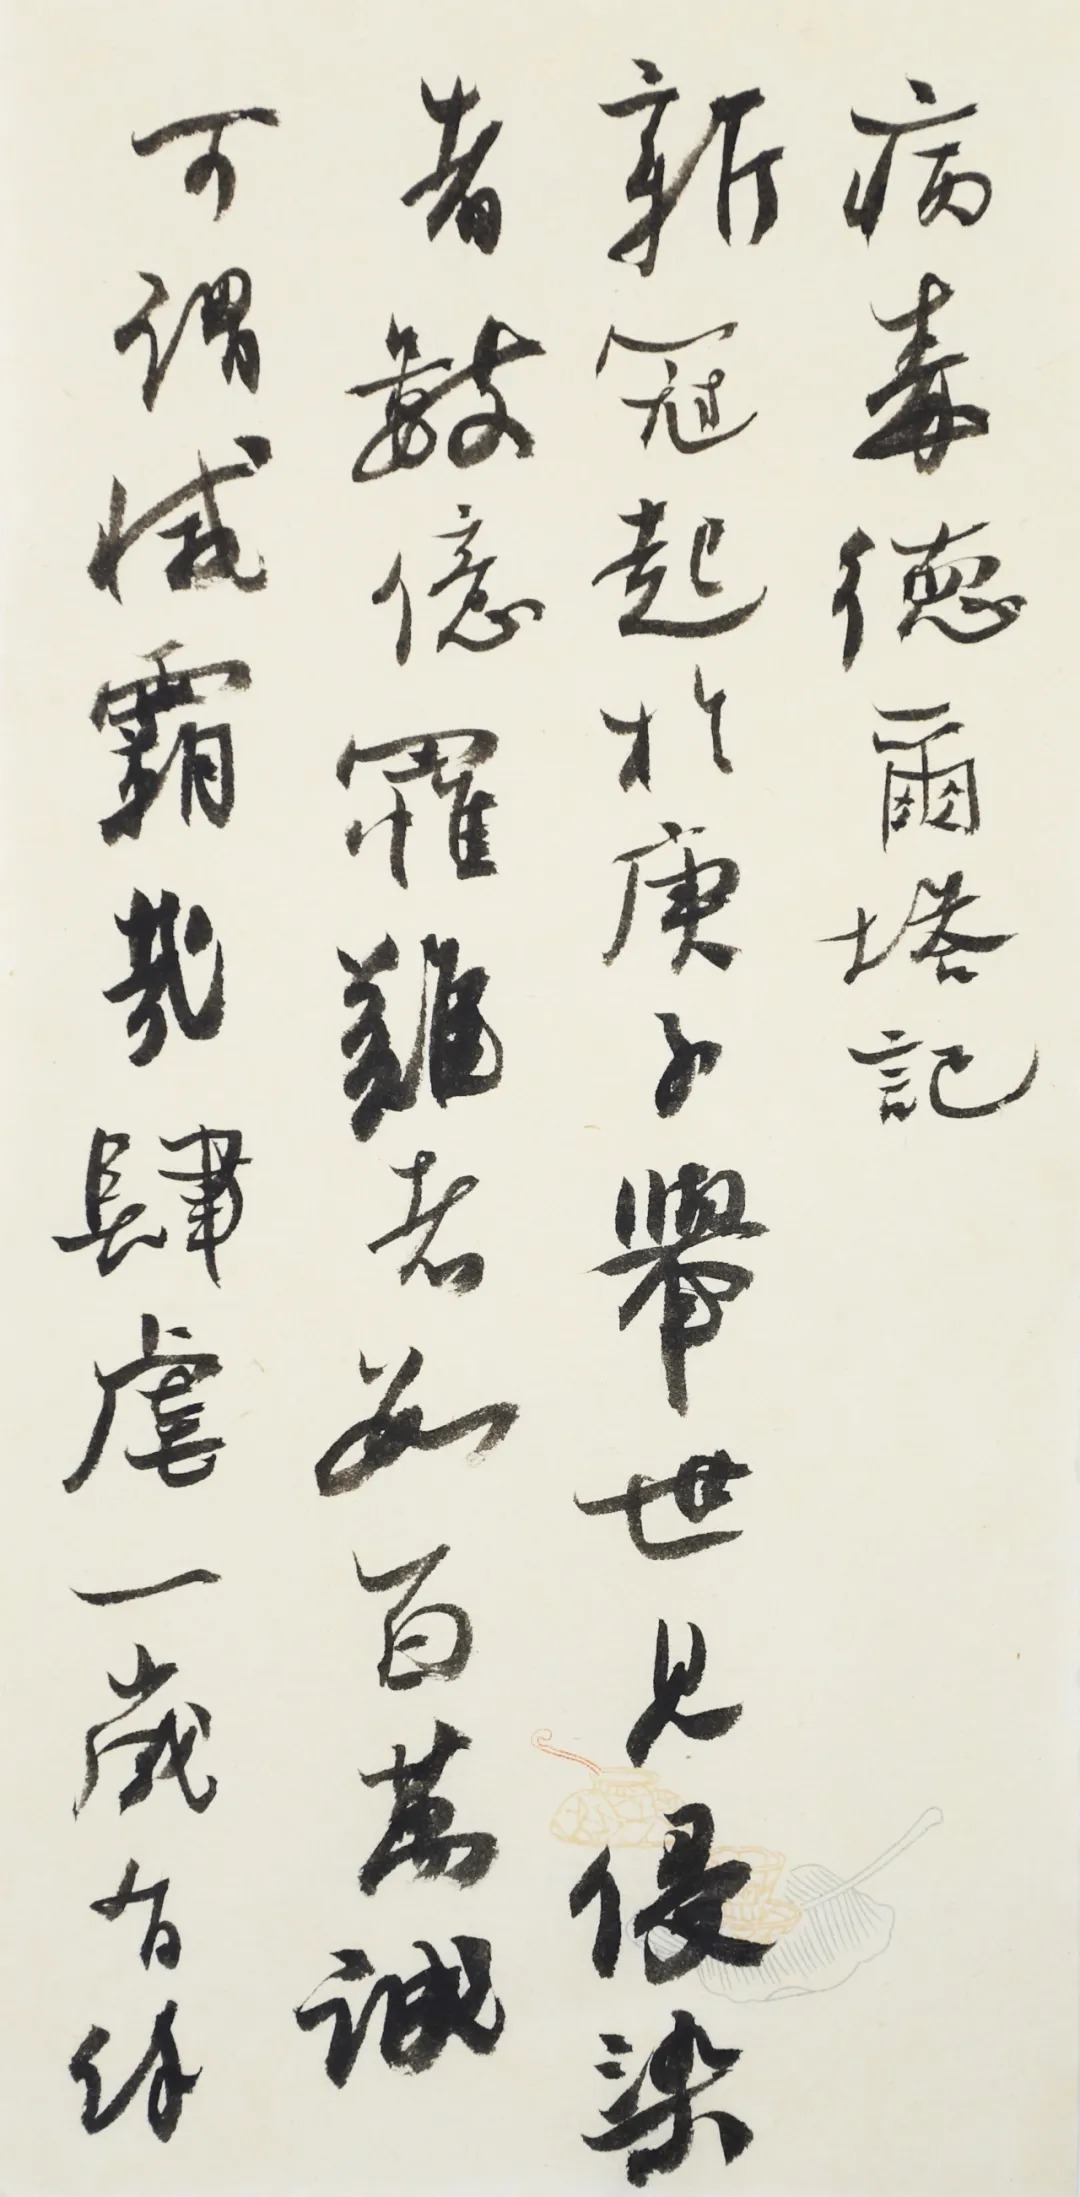 病毒德爾塔記
新冠起於庚子舉世見侵染
者數億罹難者百萬誠
可謂滅霸哉肆虐一歲有餘